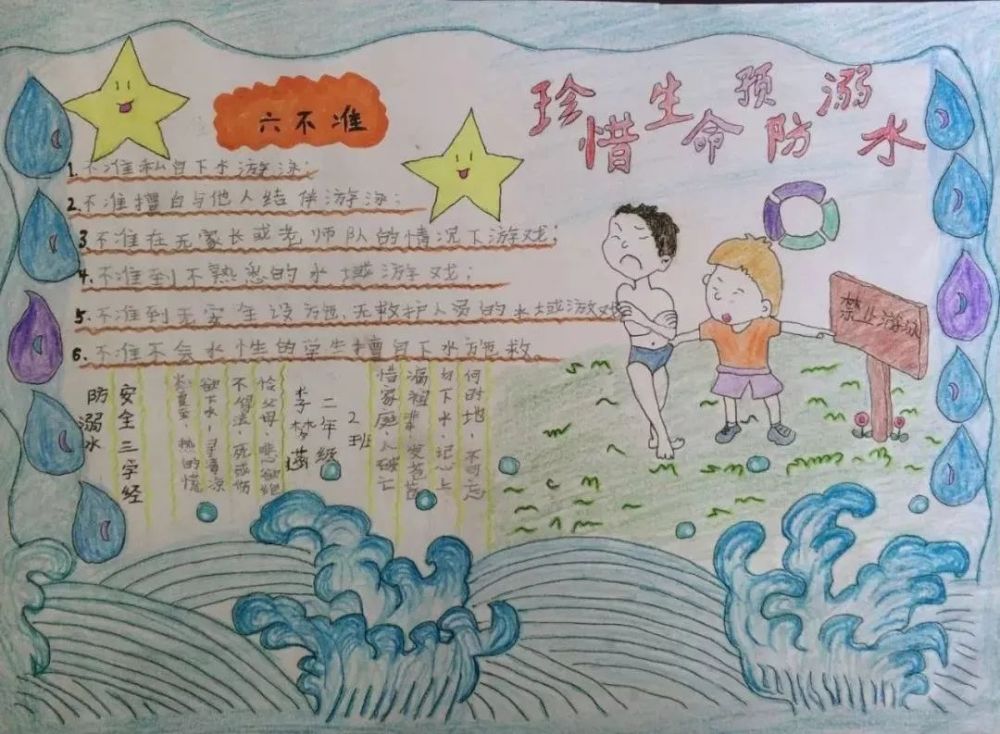 珍惜生命预防溺水
六不准
1.不准私自下水游泳;
2.不准擅自与他人结伴游泳;
3.不准在无家长或老师队的情况下游戏;
4.不准到不熟悉的水域游戏;
5.不准到无安全设施、无救护人员的水域游戏
6.不准不会水性的学生擅自下水施救。
禁止游泳
防溺水
安全三字经
热的慌
欲下水,寻清凉
不得法 死或伤
怜父母 悲欲绝
李梦
二年级
2班
惜家庭 人破亡
勿下水,记心上
何时地,不可忘